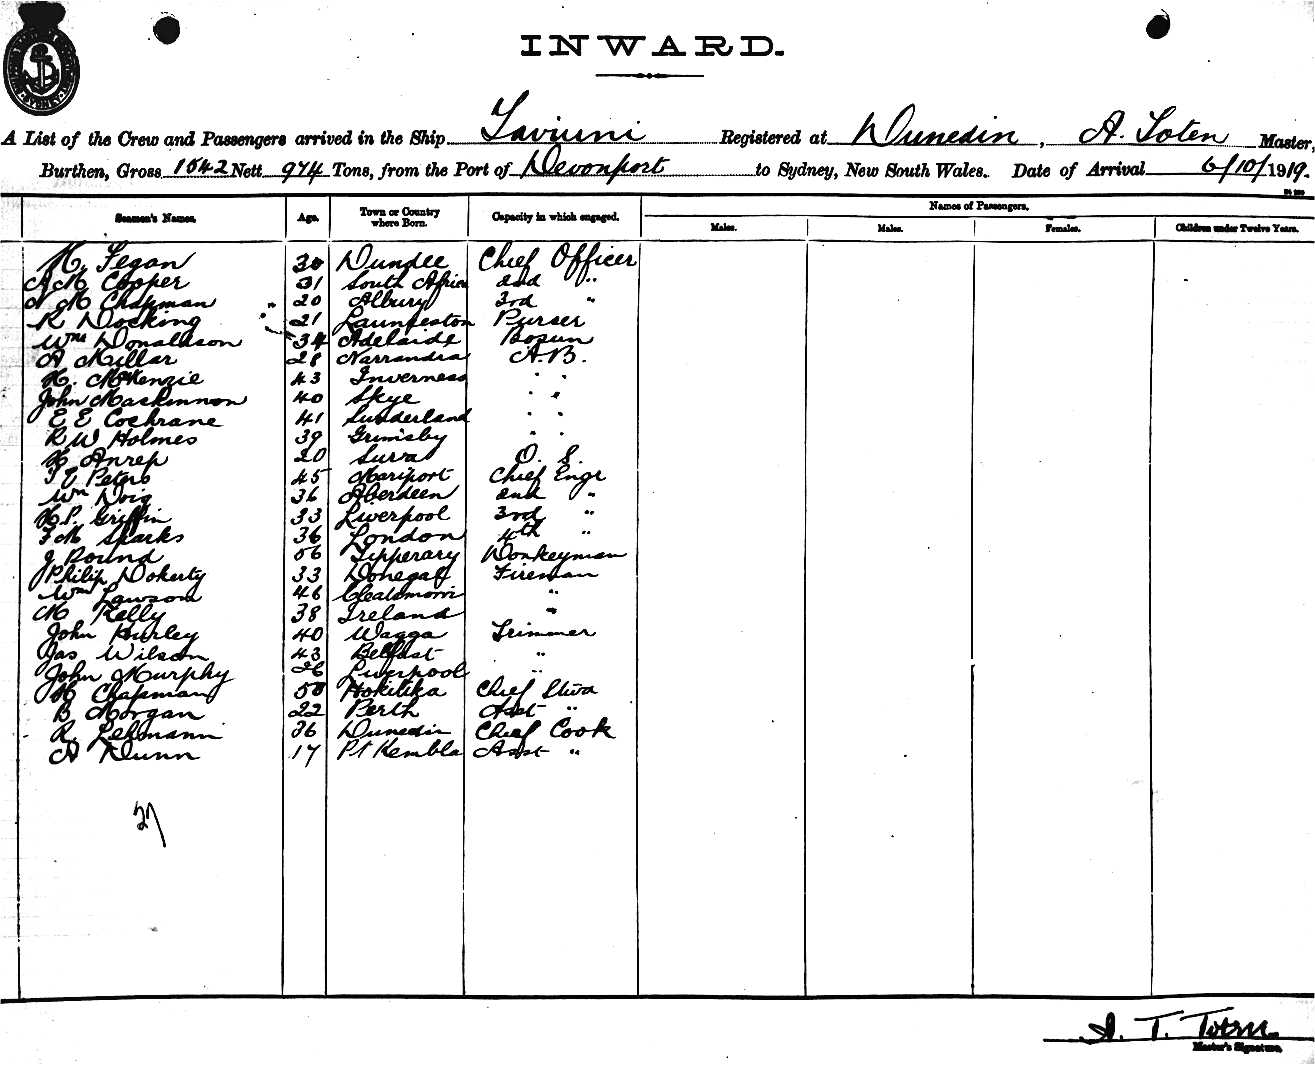 INWARD.
A List of the Crew and Passengers arrived in the Ship Taviuni Registered at Dunedin, A. Toten Master,
Burthen, Gross 1542 Nett 974 Tons, from the Port of Devonport to Sydney, New South Wales. Date of Arrival 6/10/1919.
Names of Passengers.
Seamen's Names. Age. Town or Country where Born. Capacity in which engaged. Males. Males. Females. Children under Twelve Years.
H. Fegan 30 Dundee Chief Officer
A M Copper 31 South Africa 2nd "
N M Chapman 20 Albury 3rd "
R Docking 21 Launceston Purser
Wm Donaldson 34 Adelaide Bosun
A Millar 28 Narrandra A.B.
H. McKenzie 43 Inverness " "
John Mackinnon 40 Skye " "
E E Cochrane 41 Sunderland " "
R W Holmes 39 Grimsby " "
H Anrep 20 O. S.
T E Peters 45 Mariport Chief Engr
Wm Doig 36 Aberdeen 2nd "
H P. Griffin 33 Liverpool 3rd "
F M Sparks 36 London 4th "
J Round 56 Tipperary Donkeyman
Philip Doherty 33 Donegal Fireman
Wm Lawson 46 "
M Kelly 38 Ireland "
John Hurley 40 Wagga Trimmer
Jas Wilson 43 Belfast "
John Murphy 26 Liverpool "
H Chapman 58 Hokitika Chief Stwd
B Morgan 22 Perth Asst "
R. Lehmann 36 Dunedin Chief Cook
A Dunn 17 Pt Kembla Asst "
27
A. T. Toten
Master's Signature.